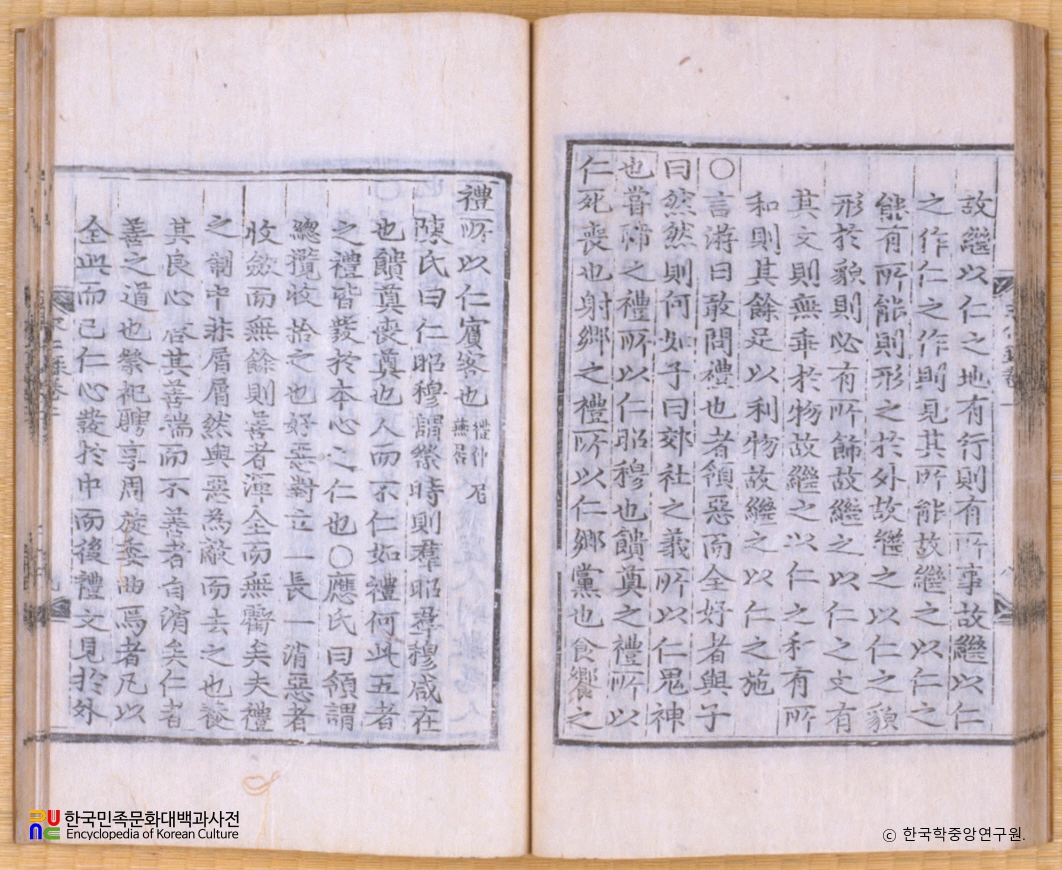 故繼以仁之地有行則有所事故繼以仁
之作仁之作則見其所能故繼之以仁之
能有所能則形之於外故繼之以仁之貌
形於貌則必有所飾故繼之以仁之文有
其文則無乖於物故繼之以仁之和有所
和則其餘足以利物故繼之以仁之施
○言游曰敢問禮也者領惡而全好者與子
曰然然則何如子曰郊社之義所以仁鬼神
也嘗禘之禮所以仁昭穆也饋奠之禮所以
仁死喪也射鄉之禮所以仁鄉黨也食饗之
禮所以仁賓客也 禮仲尼燕居
陳氏曰仁昭穆謂祭時則羣昭羣穆咸在
也饋奠喪奠也人而不仁如禮何此五者
之禮皆發於本心之仁也○應氏曰領謂
總攬收拾之也好惡對立一長一消惡者
收斂而無餘則善者渾全而無虧矣夫禮
之制中非屑屑然與惡為敵而去之也養
其良心啓其善端而不善者自消矣仁者
善之道也祭祀聘享周旋委曲焉者凡以
全此而已仁心發於中而後禮文見於外
한국민족문화대백과사전
Encyclopedia of Korean Culture
ⓒ 한국학중앙연구원.